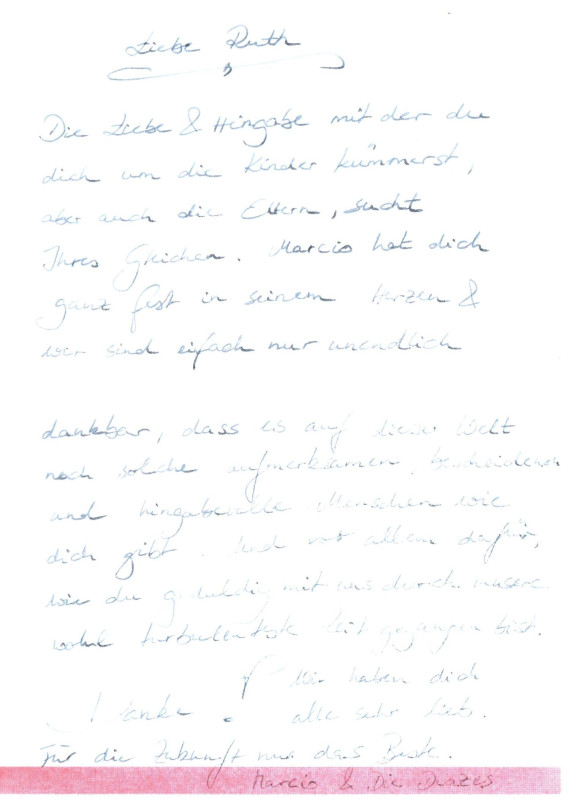 Liebe Ruth
Die Liebe & Hingabe mit der du
dich um die Kinder kümmerst,
aber auch die Eltern, sucht
Ihres Gleichen. Marcio hat dich
ganz fest in seinem Herzen &
wir sind eifach nur unendlich
dankbar, dass es auf dieser Welt
noch solche aufmerksamen, bescheidenen
und hingabevolle Menschen wie
dich gibt. Und vor allem dafür,
wie du geduldig mit uns durch unsere
wohl turbulentste Zeit gegangen bist.
Wir haben dich
Danke! alle sehr lieb.
Für die Zukunft nur das Beste.
Marcio & Die Diazes